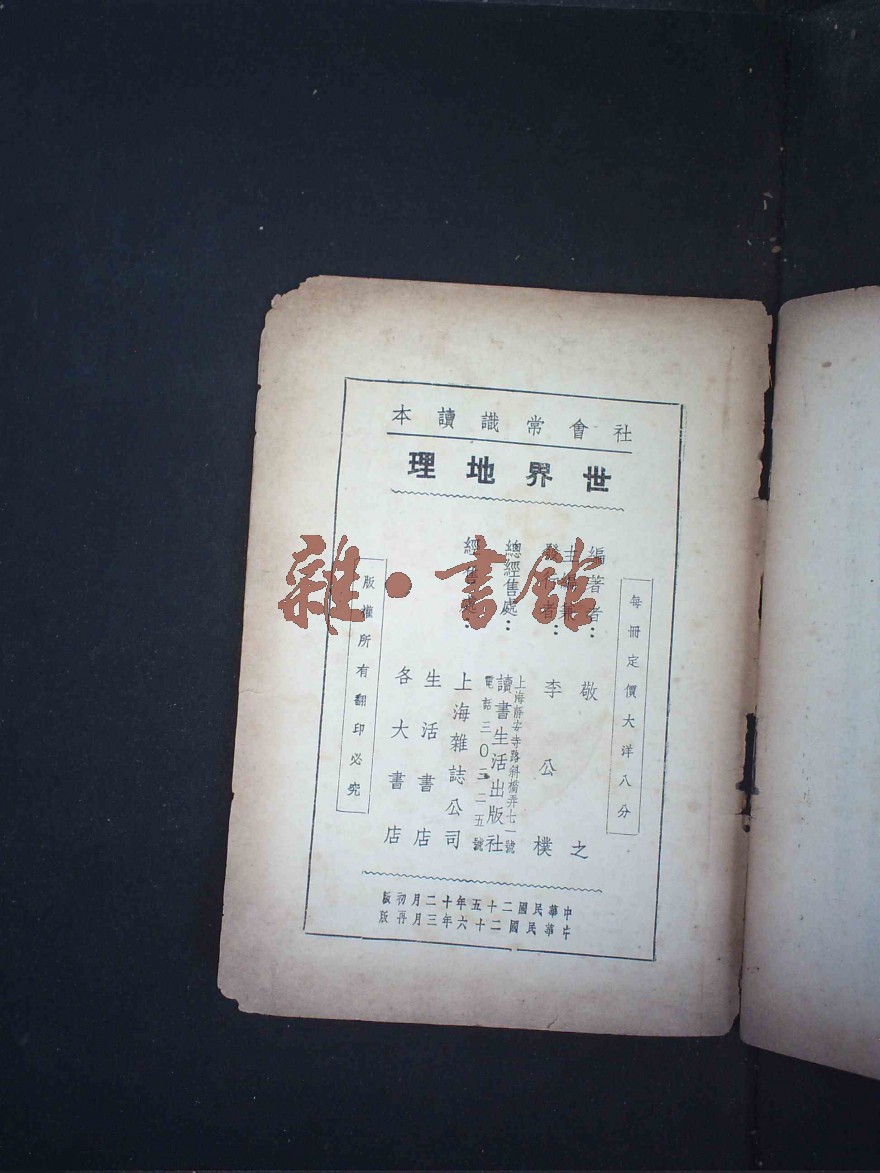 社會常識讀本
世界地理
每冊定價大洋八分
編著者：敬之
主編兼
發行者：李公樸
總經售處：
上海靜安寺路斜橋弄七一號
讀書生活出版社
電話三〇二二五號
經售處：
上海雜誌公司
生活書店
各大書店
版權所有翻印必究
中華民國二十五年十二月初版
中華民國二十六年三月再版
雜·書館